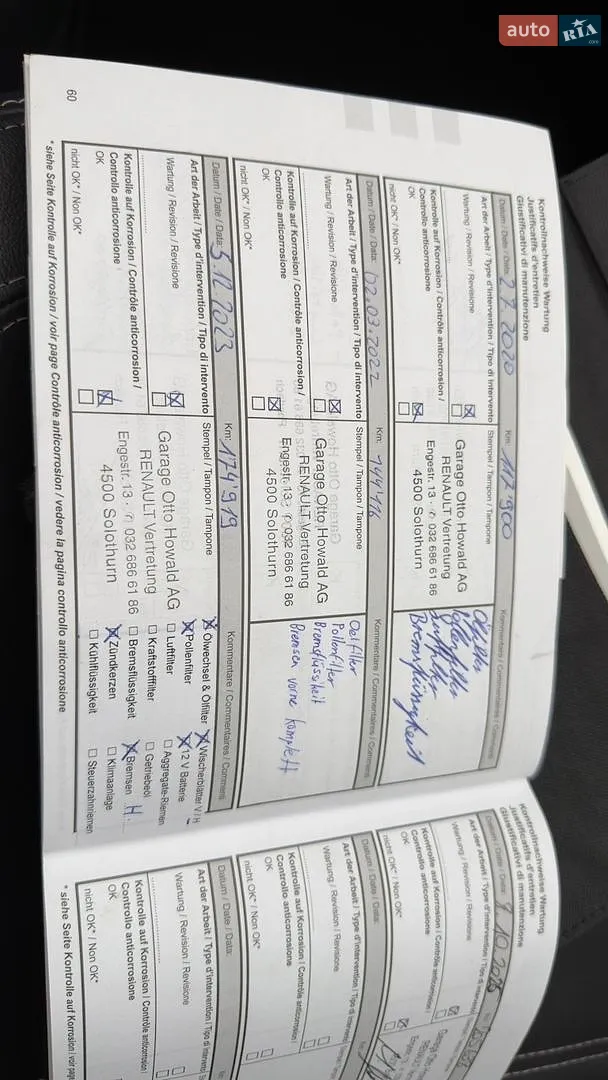 auto RIA.com
Kontrollnachweise Wartung
Justificatifs d'entretien
Giustificativi di manutenzione
Datum / Date / Data: 2 7. 2020 Km: 117'900 Kommentare / Commentaires / Comment.
Art der Arbeit / Type d'intervention / Tipo di intervento Stempel / Tampon / Tampone
Wartung / Revision / Revisione
Kontrolle auf Korrosion / Contrôle anticorrosion /
Controllo anticorrosione
OK
nicht OK* / Non OK*
Garage Otto Howald AG
RENAULT Vertretung
Engestr. 13 · ✆ 032 686 61 86
4500 Solothurn
Ölfilter
Pollenfilter
Luftfilter
Bremsflüssigkeit
Datum / Date / Data: 02.03.2022 Km: 144'416 Kommentare / Commentaires / Comment.
Art der Arbeit / Type d'intervention / Tipo di intervento Stempel / Tampon / Tampone
Wartung / Revision / Revisione
Kontrolle auf Korrosion / Contrôle anticorrosion /
Controllo anticorrosione
OK
nicht OK* / Non OK*
Garage Otto Howald AG
RENAULT Vertretung
Engestr. 13 · ✆ 032 686 61 86
4500 Solothurn
Oelfilter
Pollenfilter
Bremsflüssigkeit
Bremsen vorne komplett
Datum / Date / Data: 5.12.2023 Km: 174'919 Kommentare / Commentaires / Comment.
Art der Arbeit / Type d'intervention / Tipo di intervento Stempel / Tampon / Tampone
Wartung / Revision / Revisione
Kontrolle auf Korrosion / Contrôle anticorrosion /
Controllo anticorrosione
OK
nicht OK* / Non OK*
Garage Otto Howald AG
RENAULT Vertretung
Engestr. 13 · ✆ 032 686 61 86
4500 Solothurn
Ölwechsel & Ölfilter Wischerblätter V / H
Pollenfilter 12 V Batterie
Luftfilter Aggregate-Riemen
Kraftstofffilter Getriebeöl
Bremsflüssigkeit Bremsen H.
Zündkerzen Klimaanlage
Kühlflüssigkeit Steuerzahnriemen
* siehe Seite Kontrolle auf Korrosion / voir page Contrôle anticorrosion / vedere la pagina controllo anticorrosione
60
Kontrollnachweise Wartung
Justificatifs d'entretien
Giustificativi di manutenzione
Datum / Date / Data:
Art der Arbeit / Type d'intervention / Tipo di intervento
Wartung / Revision / Revisione
Kontrolle auf Korrosion / Contrôle anticorrosion /
Controllo anticorrosione
OK
nicht OK* / Non OK*
Datum / Date / Data:
Art der Arbeit / Type d'intervention / Tipo di intervento
Wartung / Revision / Revisione
Kontrolle auf Korrosion / Contrôle anticorrosion /
Controllo anticorrosione
OK
nicht OK* / Non OK*
Datum / Date / Data:
Art der Arbeit / Type d'intervention / Tipo di intervento
Wartung / Revision / Revisione
Kontrolle auf Korrosion / Contrôle anticorrosion /
Controllo anticorrosione
OK
nicht OK* / Non OK*
* siehe Seite Kontrolle auf Korrosion / voir page